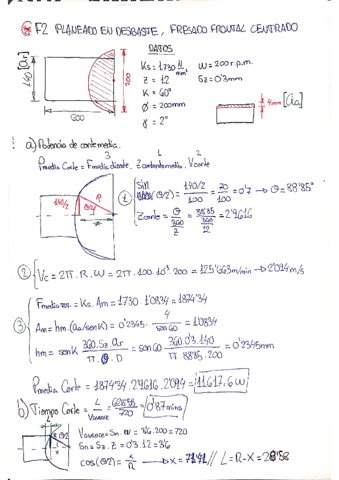 F2 PLANEADO EN DESBASTE, FRESADO FRONTAL CENTRADO
DATOS
Ks = 1730 N/mm² W = 200 r.p.m.
Z = 12 Sz = 0'3mm
K = 60°
Ø = 200mm
γ = 2°
140 [Ar]
600
200
4mm [Aa]
a) Potencia de corte media.
3 1 2
Pmedia Corte = Fmedia diente. Zcortantemedio. Vcorte
140/2 R θ/2
① Sin (θ/2) = 140/2 / 100 = 70/100 = 0'7 → θ = 88'85°
Zcorte = θ / 360/Z = 88'85 / 360/12 = 2'9616
② Vc = 2π. R. W = 2π. 100. 10⁻³. 200 = 125'663 m/min → 2'094 m/s
③ Fmedia = Ks. Am = 1730. 1'0834 = 1874'34
Am = hm. (Aa/senK) = 0'2345. 4/sen60 = 1'0834
hm = senK 360. Sz. ar / π. θ. D = sen60 360. 0'3. 140 / π. 88'85. 200 = 0'2345mm
Pmedia Corte = 1874'34. 2'9616. 2'094 = 11.617,6 W
b) Tiempo Corte = L / Vavance = 628'58 / 720 = 0'87 mins
Vavance = Sn. W = 3'6. 200 = 720
Sn = Sz. Z = 0'3. 12 = 3'6
cos(θ/2) = x/R → x = 71'41 // L = R - X = 28'58